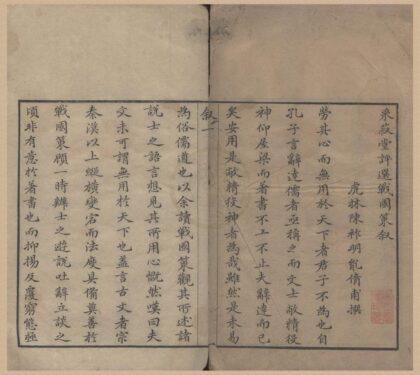 采菽堂評選戰國策叙
虎林陳祚明胤倩甫撰
勞其心而無用於天下者君子不為也自
孔子言辭達儒者亟稱之而文士敝精役
神仰屋梁而著書不工不止夫辭達而已
矣安用是敝精役神者為哉雖然是未易
叙一
為俗儒道也以余讀戰國策觀其所述諸
說士之語言想見其所用心慨然嘆曰夫
文未可謂無用於天下也盖言古文者宗
秦漢以上縱横變宕而法度具備莫善於
戰國策顧一時辨士之遊說吐辭立談之
頃非有意於著書也而抑揚反覆窮態極